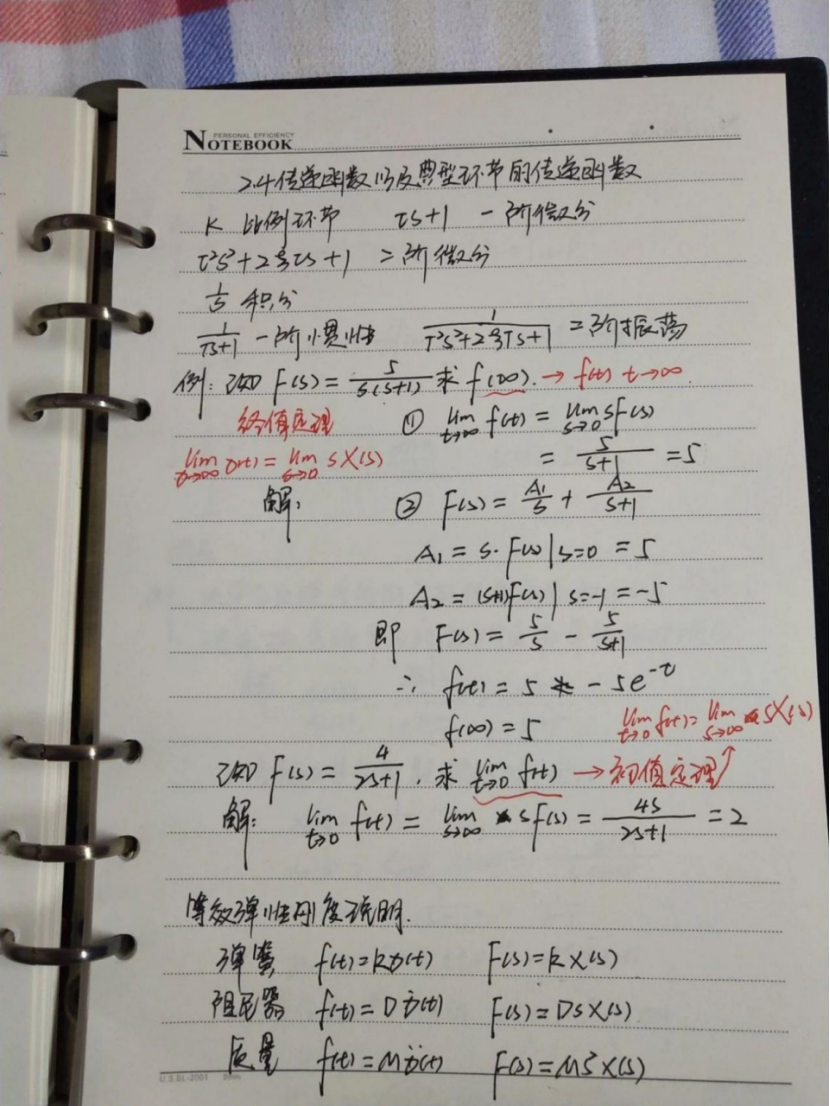 PERSONAL EFFICIENCY
NOTEBOOK
2.4传递函数以及典型环节的传递函数
K 比例环节 τs+1 一阶微分
τ²s²+2ξτs+1 二阶微分
1/s 积分
1/(Ts+1) 一阶惯性 1/(T²s²+2ξTs+1) 二阶振荡
例: 已知 F(s) = 5/(s(s+1)) 求 f(∞). → f(t) t→∞
终值定理 ① lim t→∞ f(t) = lim s→0 sF(s)
lim t→∞ x(t) = lim s→0 sX(s) = 5/(s+1) = 5
解: ② F(s) = A₁/s + A₂/(s+1)
A₁ = s·F(s)|s=0 = 5
A₂ = (s+1)F(s)|s=-1 = -5
即 F(s) = 5/s - 5/(s+1)
∴ f(t) = 5 - 5e^-t
f(∞) = 5 lim t→0 f(t) = lim s→∞ sX(s)
已知 F(s) = 4/(2s+1), 求 lim t→0 f(t) → 初值定理
解: lim t→0 f(t) = lim s→∞ sF(s) = 4s/(2s+1) = 2
等效弹性刚度说明.
弹簧 f(t)=kx(t) F(s)=kX(s)
阻尼器 f(t)=Dẋ(t) F(s)=DsX(s)
质量 f(t)=Mẍ(t) F(s)=Ms²X(s)